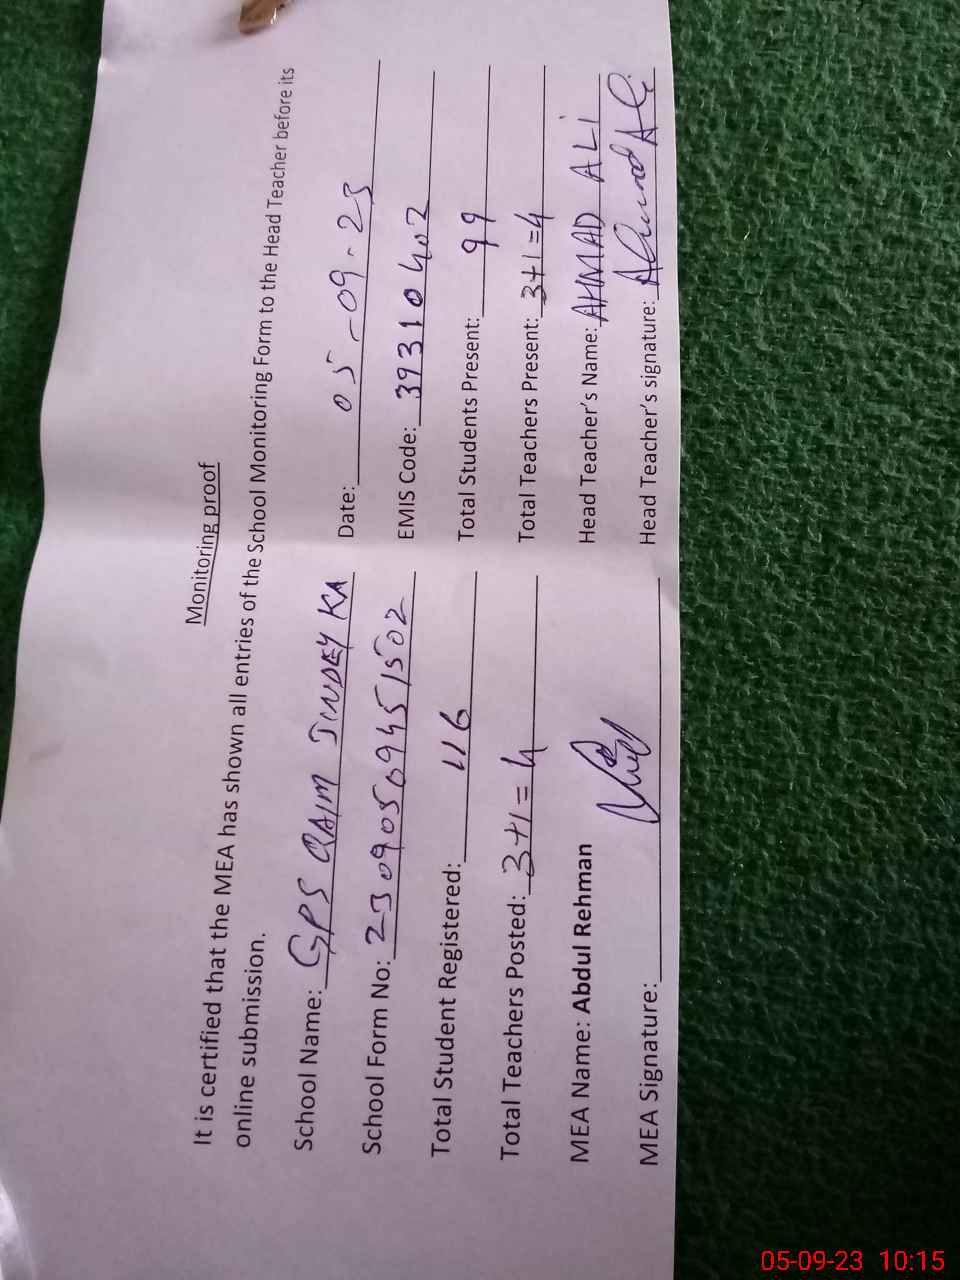 Monitoring proof
It is certified that the MEA has shown all entries of the School Monitoring Form to the Head Teacher before its
online submission.
School Name: GPS QAIM JINDEY KA Date: 05-09-23
School Form No: 23090509451502 EMIS Code: 39310402
Total Student Registered: 116 Total Students Present: 99
Total Teachers Posted: 3+1=4 Total Teachers Present: 3+1=4
MEA Name: Abdul Rehman Head Teacher's Name: AHMAD ALI
MEA Signature: Head Teacher's signature: Ahmad Ali
05-09-23 10:15